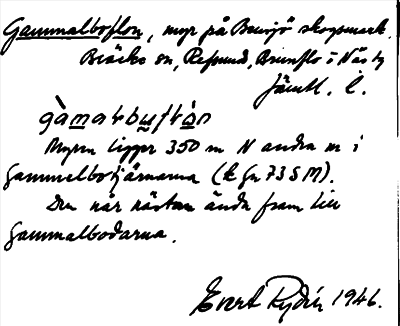 Gammalboflon, myr på Bensjö skogsmark,
Bräcke sn, Refsund, Brunflo i Näs tg
Jämtl. l.
Myren ligger 350 m N andra m i
Gammelbotjärnarna (k fn 73 S M).
Den når nästan ända fram till
Gammalbodarna.
Evert Rydén 1946.